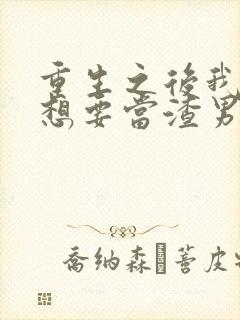 重生之後我
想要當渣男
喬納森 菩皮